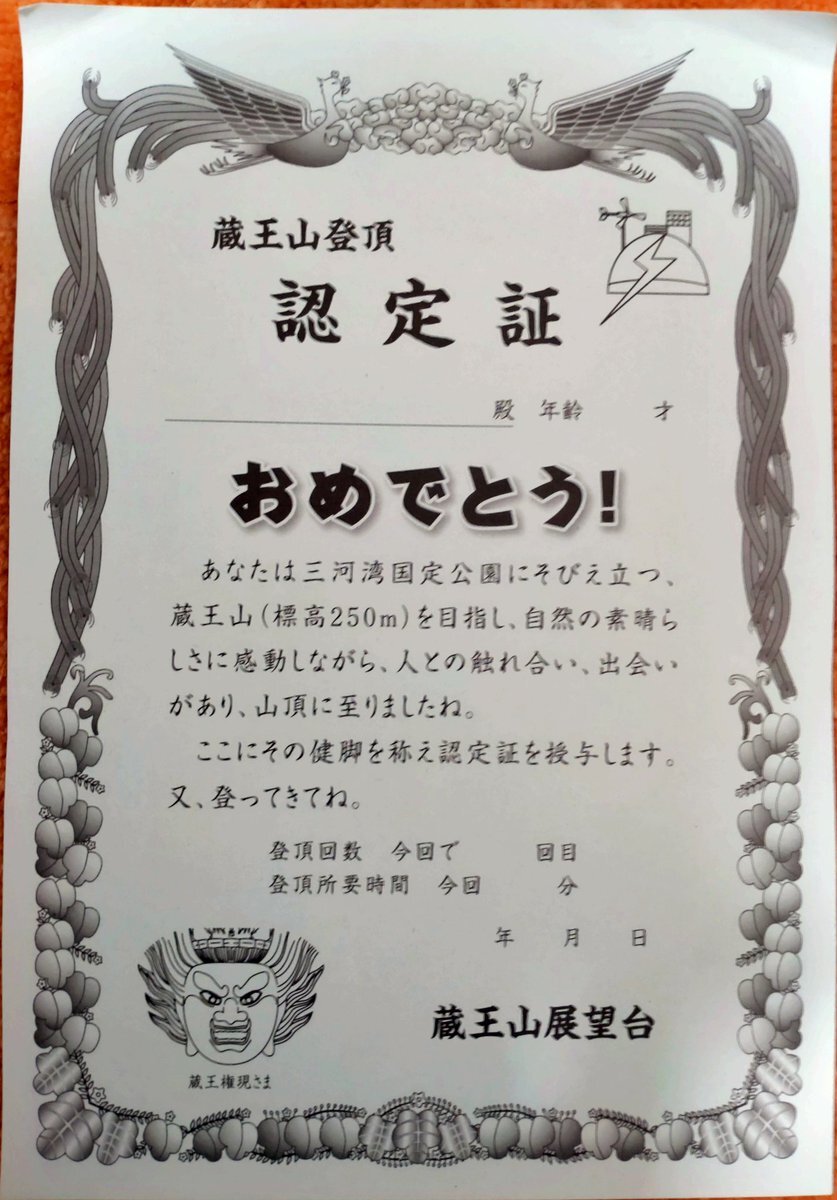 蔵王山登頂
認定証
殿 年齢 才
おめでとう!
あなたは三河湾国定公園にそびえ立つ、
蔵王山(標高250m)を目指し、自然の素晴ら
しさに感動しながら、人との触れ合い、出会い
があり、山頂に至りましたね。
ここにその健脚を称え認定証を授与します。
又、登ってきてね。
登頂回数 今回で 回目
登頂所要時間 今回 分
年 月 日
蔵王山展望台
蔵王権現さま